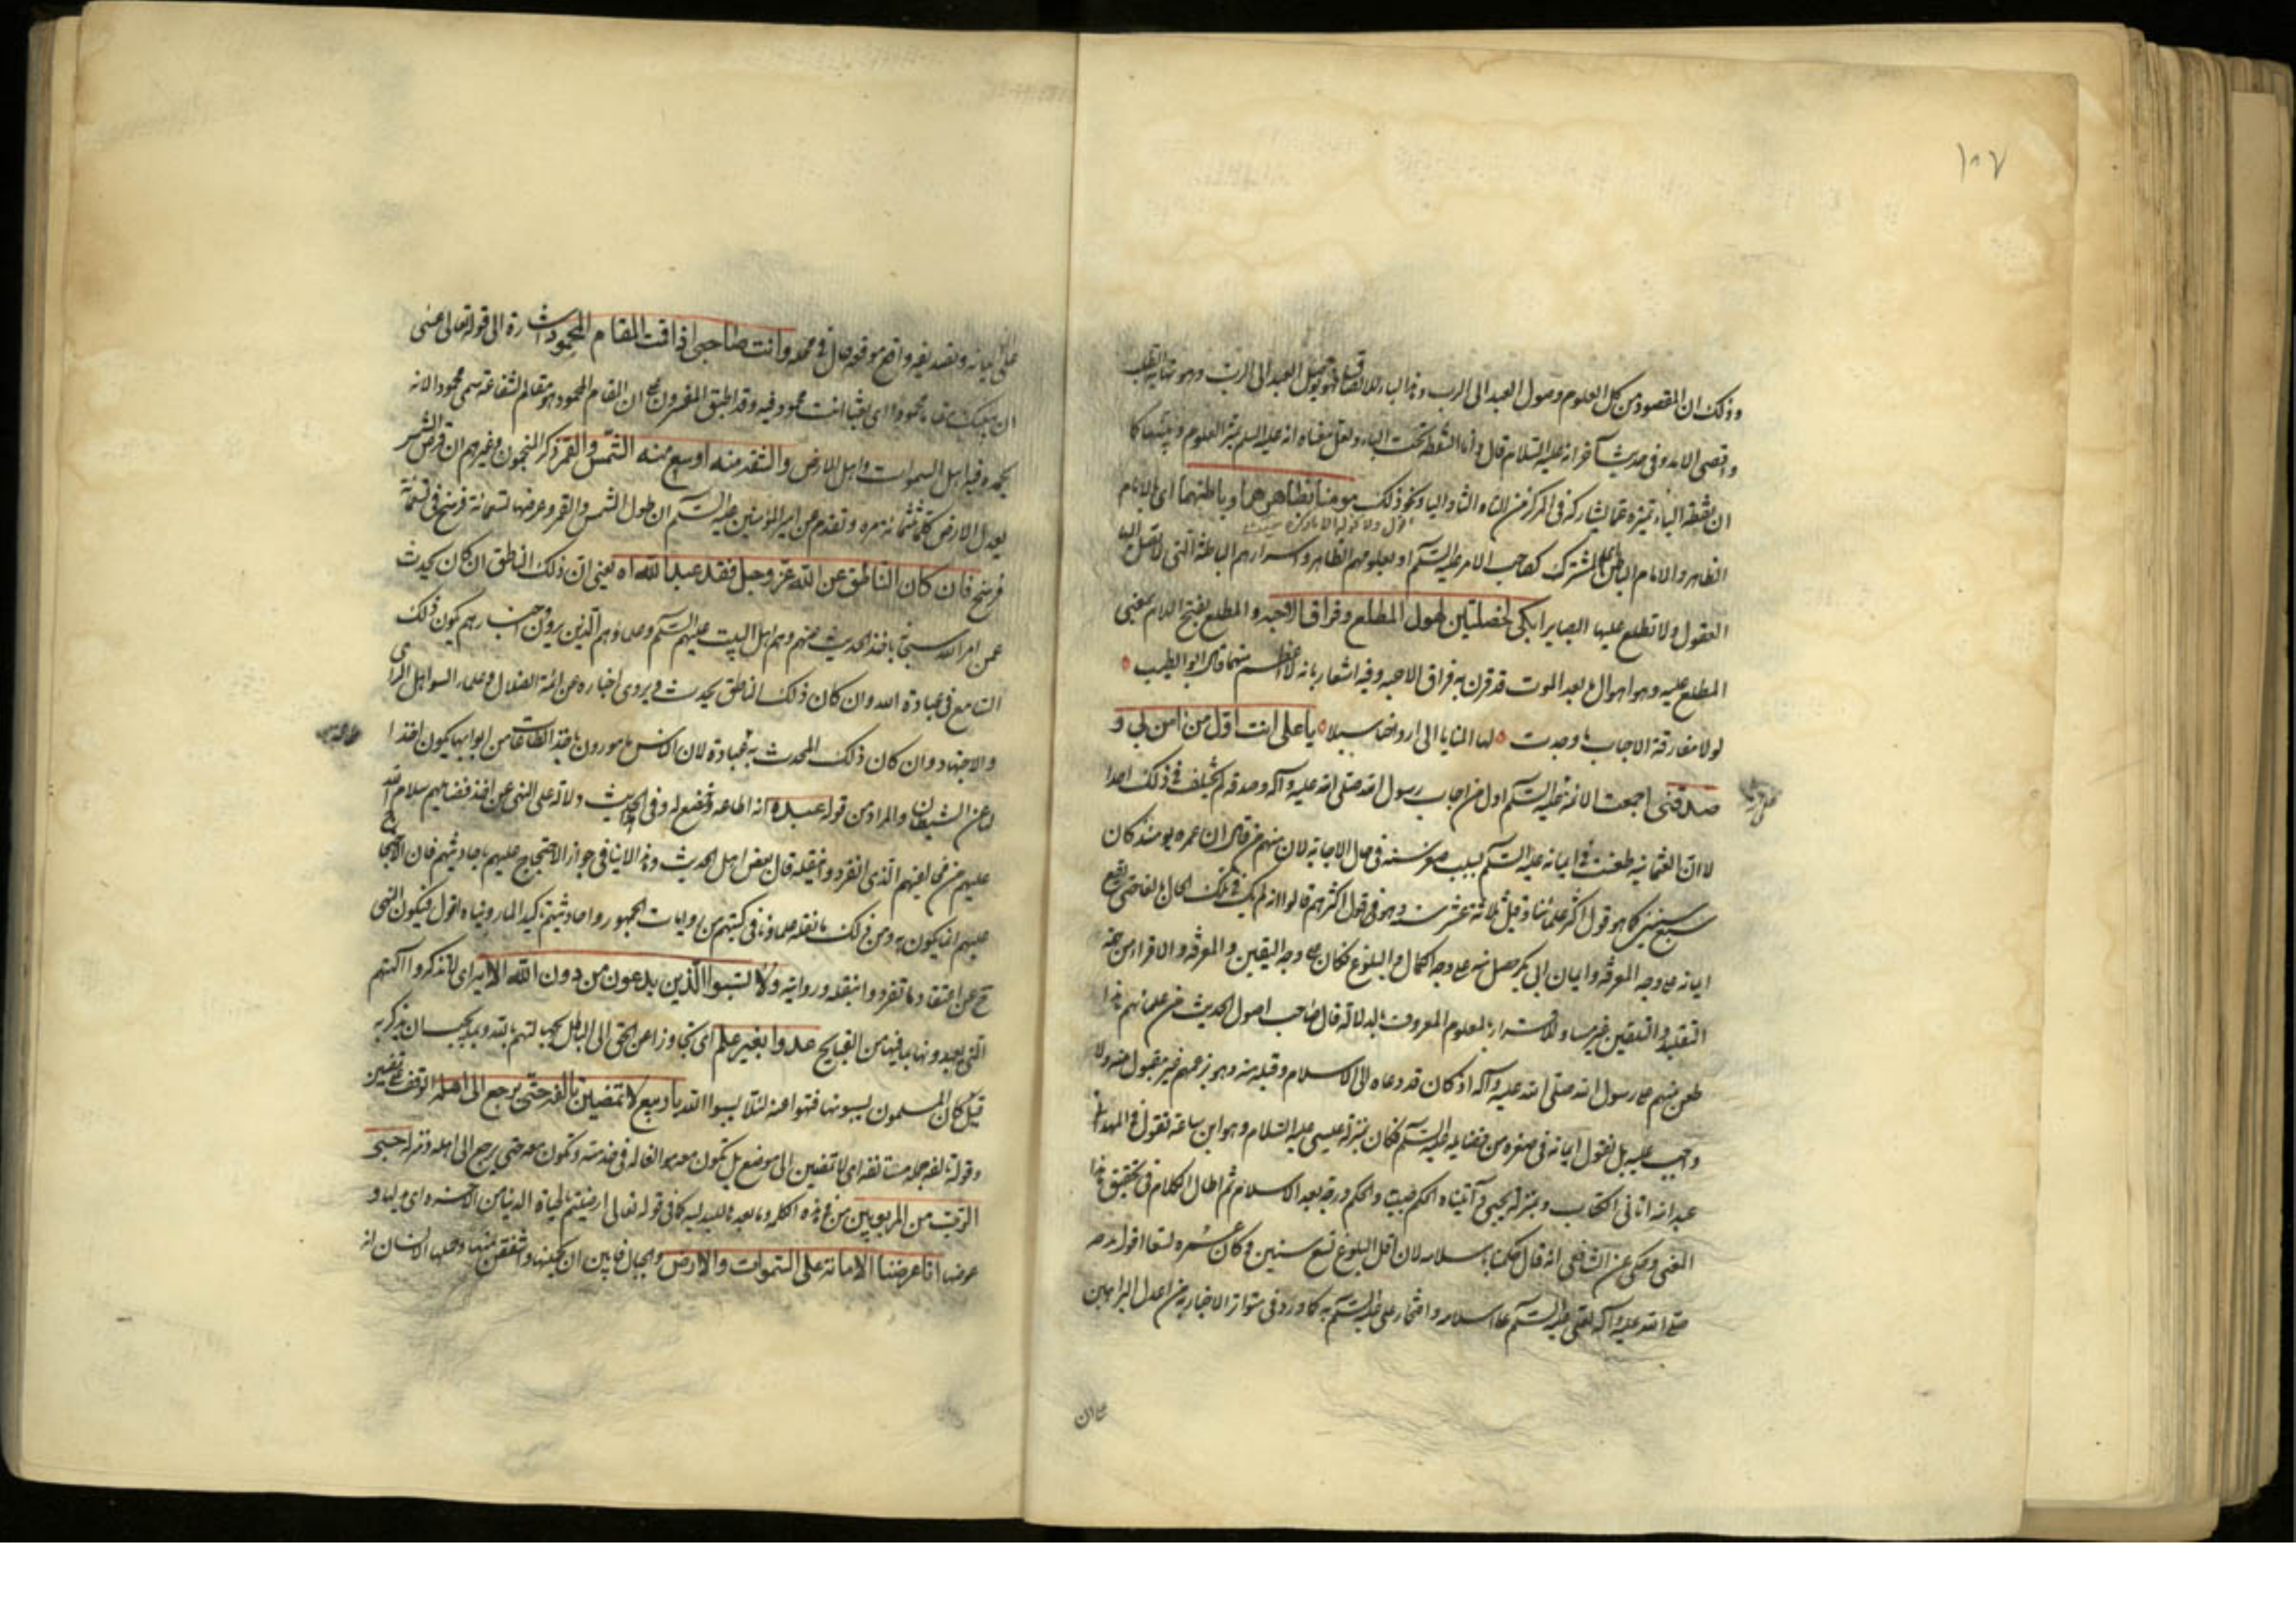 ١٠٧
وذلك ان المقصود من كل العلوم وصول العبد الى الرب وهذا الباء للالصاق فهو يوصل العبد الى الرب وهو نهاية الطلب
واقصى الابد وفى حديث آخر انه عليه السلام قال وانا النقطة تحت الباء ولعل معناه انه عليه السلم يميز العلوم ويبينها كما
ان نقطة الباء تميزه عما يشاركه فى المركز من التاء والثاء والياء ونحو ذلك مومنا بظاهرهما وباطنهما اى بالامام
الظاهر والامام الباطن المشترك كصاحب الامر عليه السلم او بعلومهم الظاهر واسرارهم الباطنة التى لا تصل اليها
العقول ولا تطلع عليها البصاير ابكى لخصلتين لهول المطلع وفراق الاحبه والمطلع بفتح اللام بمعنى
المطلع عليه وهو اهوال ما بعد الموت قد قرن به فراق الاحبه وفيه اشعار بانه لا اعظم منهما قال ابو الطيب
لولا مفارقة الاحباب ما وجدت لها المنايا الى ارواحنا سبلا يا على انت اول من آمن بى و
صدقنى اجمعت الائمة عليهم السلم اول من اجاب رسول الله صلى الله عليه وآله وصدقه لم يختلف فى ذلك احدا
الا ان العثمانية طعنت فى ايمانه عليه السلم بسبب صغر سنه فى حال الاجابه لان منهم من قال ان عمره يومئذ كان
سبع سنين كما هو قول اكثر علمائنا وقيل ثلاثة عشر سنه وهو فى قول اكثرهم قالوا انه لم يكن فى تلك الحال بالغا حتى يقع
ايمانه على وجه المعرفة وايمان ابى بكر حصل منه على وجه الكمال والبلوغ فكان على وجه اليقين والمعرفة والاقرار من جهة
التقليد والتلقين غير مساو للاقرار بالمعلوم المعروف بالدلالة قال صاحب اصول الحديث من علمائهم هذا
طعن منهم على رسول الله صلى الله عليه وآله اذ كان قد دعاه الى الاسلام وقبله منه وهو بزعمهم غير مقبول منه ولا
واجب عليه بل نقول ايمانه فى صغره من فضايله عليه السلم فكان بمنزلة عيسى عليه السلام وهو ابن ساعة نقول فى المهد انى
عبد الله اتانى الكتاب وبمنزلة يحيى وآتيناه الحكم صبيا والحكم درجة بعد الاسلام ثم اطال الكلام فى تحقيق هذا
المعنى وحكى عن الشافعى انه قال حكمنا باسلامه لان اقل البلوغ تسع سنين وكان عمره تسعا اقول مدحه
صلى الله عليه وآله لعلى عليه السلم على اسلامه وافتخار على عليه السلم به كما ورد فى متواتر الاخبار به من اعدل البراهين
على ان
على ايمانه وتصديقه واقع موقعه قال فى محمد وانت صاحبى اذا قمت المقام المحمود اشارة الى قوله تعالى عسى
ان يبعثك مقاما محمودا اى يقيما انت محمود فيه وقد اطبق المفسرون على ان المقام المحمود هو مقام الشفاعة سمى محمودا لانه
يحمده فيه اهل السموات واهل الارض والشقه منه اوسع منه الشمس والقمر ذكر المنجمون وغيرهم ان قرص الشمس
يعدل الارض كلها ثلثمائة مره وتقدم عن امير المؤمنين عليه السلم ان طول الشمس والقمر وعرضها تسعمائة فرسخ فى تسعمائة
فرسخ فان كان الناطق عن الله عز وجل فقد عبد الله اه يعنى ان ذلك الناطق ان كان يحدث
عن امر الله سبحانه باخذ الحديث منهم وهم اهل البيت عليهم السلم وعلماؤهم الذين يروون اخبارهم يكون ذلك
السامع فى عبادة الله وان كان ذلك الناطق يحدث ويروى اخباره عن ائمة الضلال وعلماء السوء اهل الراى
والاجتهاد وان كان ذلك المحدث به عبادة لان الناس مامورون باخذ الطاعات من ابوابها يكون اخذا
لها عن الشيطان والمراد من قوله عبده انه اطاعه وخضع له وفى الحديث دلالة على النهى عن اخذ فضايلهم سلام الله
عليهم من مخالفيهم الذى انفردوا بنقله قال بعض اهل الحديث وهذا لا ينافى جواز الاحتجاج عليهم باحاديثهم فان الاحتجاج
عليهم انما يكون به ومن ذلك ما نقله علماؤنا فى كتبهم من روايات الجمهور واحاديثهم تاكيدا لما رويناه اقول فيكون النهى
عن اعتقاد ما تفردوا بنقله وروايته ولا تسبوا الذين يدعون من دون الله الاية اى لا تذكروا آلهتهم
التى يعبدونها بما فيها من القبايح عدوا بغير علم اى تجاوزا عن الحق الى الباطل بجهالتهم بالله وبما يجب ان يذكر به
قيل كان المسلمون يسبونها فنهوا عنه لئلا يسبوا الله ياربيع لا تمضين بالفه حتى يرجع الى اهله
وقوله بالفه جملة مستانفه اى لا تمضين الى موضع بل يكون معه والفا له فى خدمته وتكون معه حتى يرجع الى اهله ومنزله حبى
الزيت من المربوبين من فى هذه الكلمة وما بعده للبدليه كما فى قوله تعالى ارضيتم بالحياة الدنيا من الاخره اى بدلها و
عوضها انا عرضنا الامانة على السموات والارض والجبال فابين ان يحملنها واشفقن منها وحملها الانسان انه